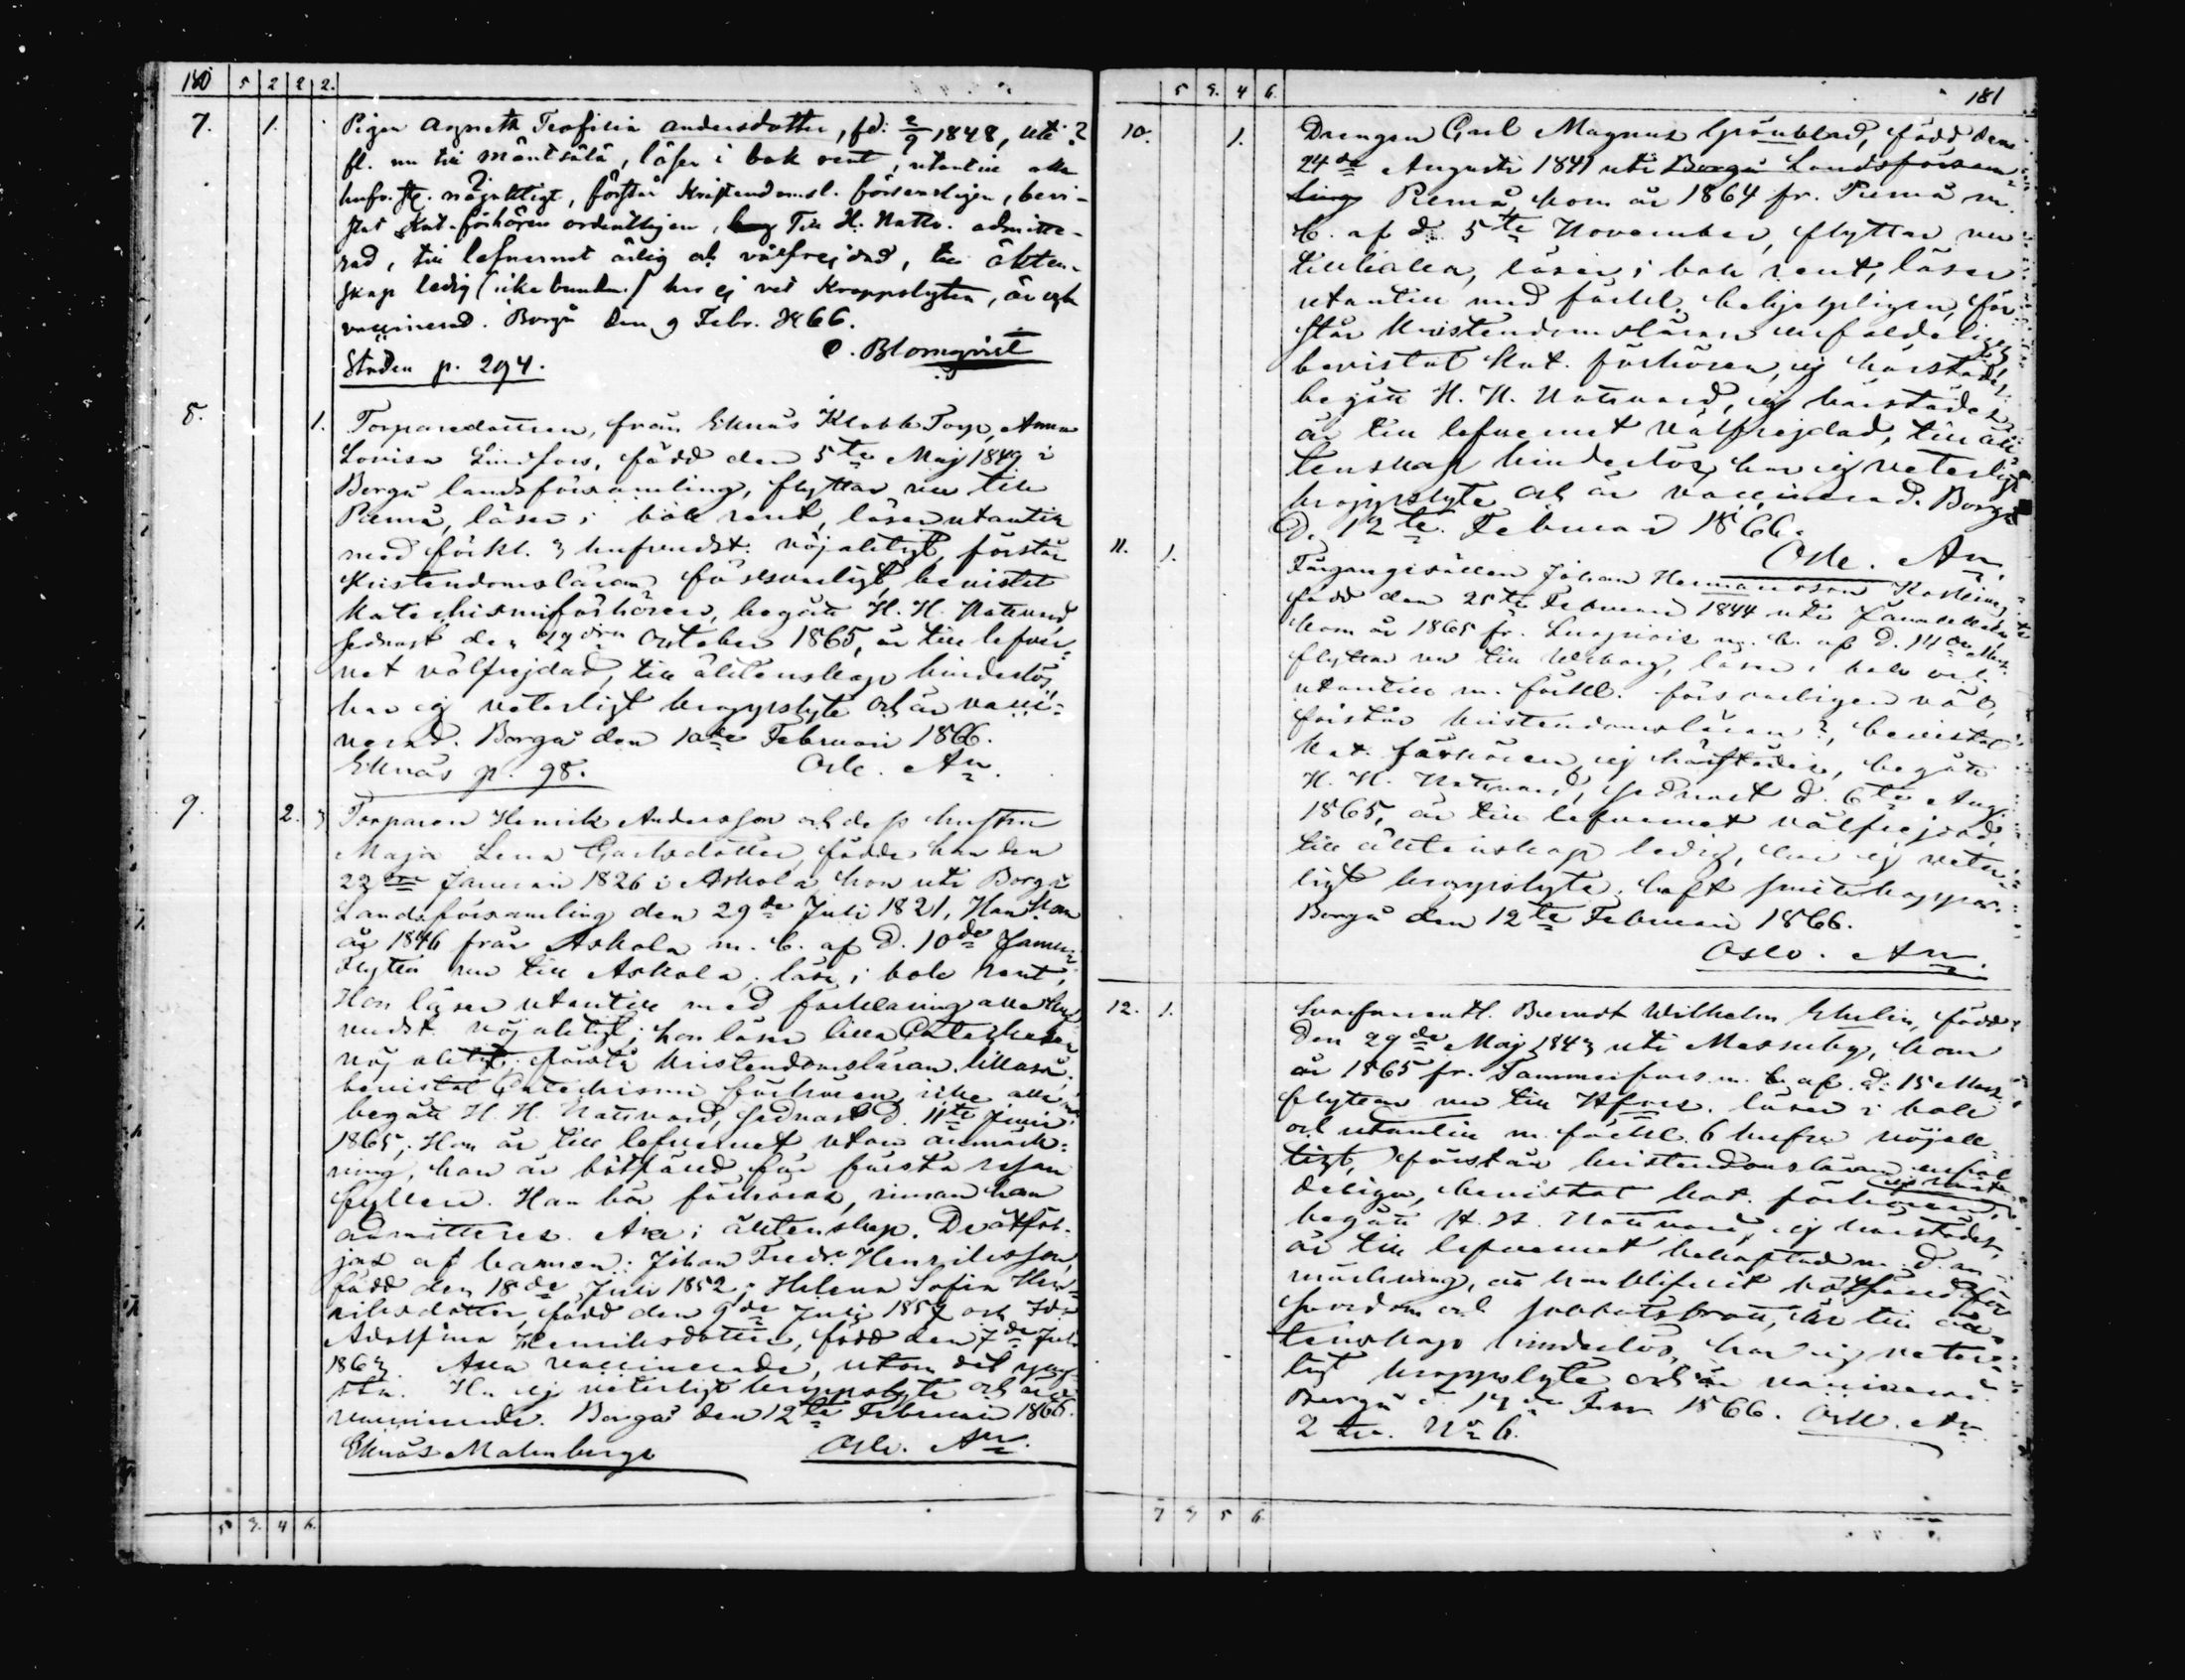 180 5 2 2 2.
7. 1. Pigan Agneth Teofilia Andersdotter, fd: 2/9 1848, uti ?
fl. nu till Mäntsälä, läser i bok rent, utantill alla
hufv. st. nöjaktigt, förstår kristendomsl. försvarligen, bevi-
stat Kat. förhören ordentligen, till H. Nattv. admitte-
rad, till lefvernet ärlig och välfrejdad, till äkten-
skap ledig (icke bunden) har ej vet. kroppslyten, är ock
vaccinerad. Borgå den 9 Febr. 1866.
Staden p. 294. C. Blomqvist
8. 1. Torparedottren, från Eknäs Klabb Torp, Anna
Lovisa Lindfors, född den 5te Maj 1849 i
Borgå landsförsamling, flyttar nu till
Pernå, läser i bok rent, läser utantill
med förkl. hufvudst. nöjaktigt, förstår
Kristendomsläran försvarligt, bevistat
Katechismiförhören, begått H. H. Nattvard,
sednast den 22dra October 1865, är till lefver-
net välfrejdad, till äktenskap hinderlös,
har ej veterligt kroppslyte och är vacci-
nerad. Borgå den 10de Februari 1866.
Eknäs p. 98. Osk. An.
9. 2. 3 Torparen Henrik Andersson och dess hustru
Maja Lena Carlsdotter, födde han den
22dra Januari 1826 i Askola, hon uti Borgå
Landsförsamling den 29de Juli 1821, Han kom
år 1846 från Askola m. b. af d. 10de Janu-
flytta nu till Askola, läsa i bok rent,
Hon läser utantill med förklaring alla huf-
vudst. nöjaktigt; han läser lilla Catechesen
nöjaktigt, förstå kristendomsläran likaså;
bevistat Catechismi förhören, icke alla,
begått H. H. Nattvard, sednast d. 11te Juni
1865; Hon är till lefvernet utan anmärk-
ning, han är bötfäld för första resan
fylleri. Han bör förhöras, innan han
admitteres. Äro i äktenskap. De åtföl-
jas af barnen: Johan Fredr. Henriksson,
född den 18de Juli 1852; Helena Sofia Hen-
riksdotter, född den 9de Juli 1857 och Ida
Adolfina Henriksdotter, född den 7de Juli
1863. Äro vaccinerade, utom det yng-
sta. Ha ej veterligt kroppslyte och äro
vaccinerade. Borgå den 12te Februari 1866.
Eknäs Malmberga Osk. An.
5 3. 4 6.
5 3. 4 6. 181
10. 1. Drengen Carl Magnus Grönblad, född den
24de Augusti 1841 uti Borgå Landsförsam-
ling Pernå, kom år 1864 fr. Pernå m.
b. af d. 5te November, flyttar nu
tillbaka, läser i bok rent, läser
utantill med förkl. behjelpligen, för-
står Kristendomsläran enfaldeligen,
bevistat Kat. förhören, ej härstädes,
begått H. H. Nattvard, ej härstädes,
är till lefvernet välfrejdad, till äk-
tenskap hinderlös, har ej veterligt
kroppslyte och är vaccinerad. Borgå
d. 12te Februari 1866.
Osk. An.
11. 1. Färgaregesällen Johan Hermansson
född den 25te Februari 1844 uti
kom år 1865 fr. m. b. af d.
flyttar nu till Wiborg, läser i bok och
utantill m. förkl. försvarligen väl,
förstår kristendomsläran ?, bevistat
Kat. förhören, ej härstädes, begått
H. H. Nattvard, sednast d. 6te Aug.
1865, är till lefvernet välfrejdad,
till äktenskap ledig, har ej veter-
ligt kroppslyte, haft smittkoppor.
Borgå den 12te Februari 1866.
Osk. An.
12. 1. Berndt Wilhelm Ekelin, född
den 29de Maj 1843 uti Messuby, kom
år 1865 fr. Tammerfors m. b. af d. 15
flyttar nu till Hfors. läser i bok
och utantill m. förkl. 6 hufvu nöjak-
tigt, förstår kristendomsläran enfal-
deligen, bevistat kat. förhören, ej härst.
begått H. H. Nattvard, ej härstädes,
är till lefvernet behäftad m. d. an-
märkning, att han blifvit bötfäld för
svordom och sabbatsbrott, är till äk-
tenskap hinderlös, har ej veter-
ligt kroppslyte och är vaccinerad.
Borgå d. Febr. 1866. Osk. An.
2 No 6.
7 3 5 6.